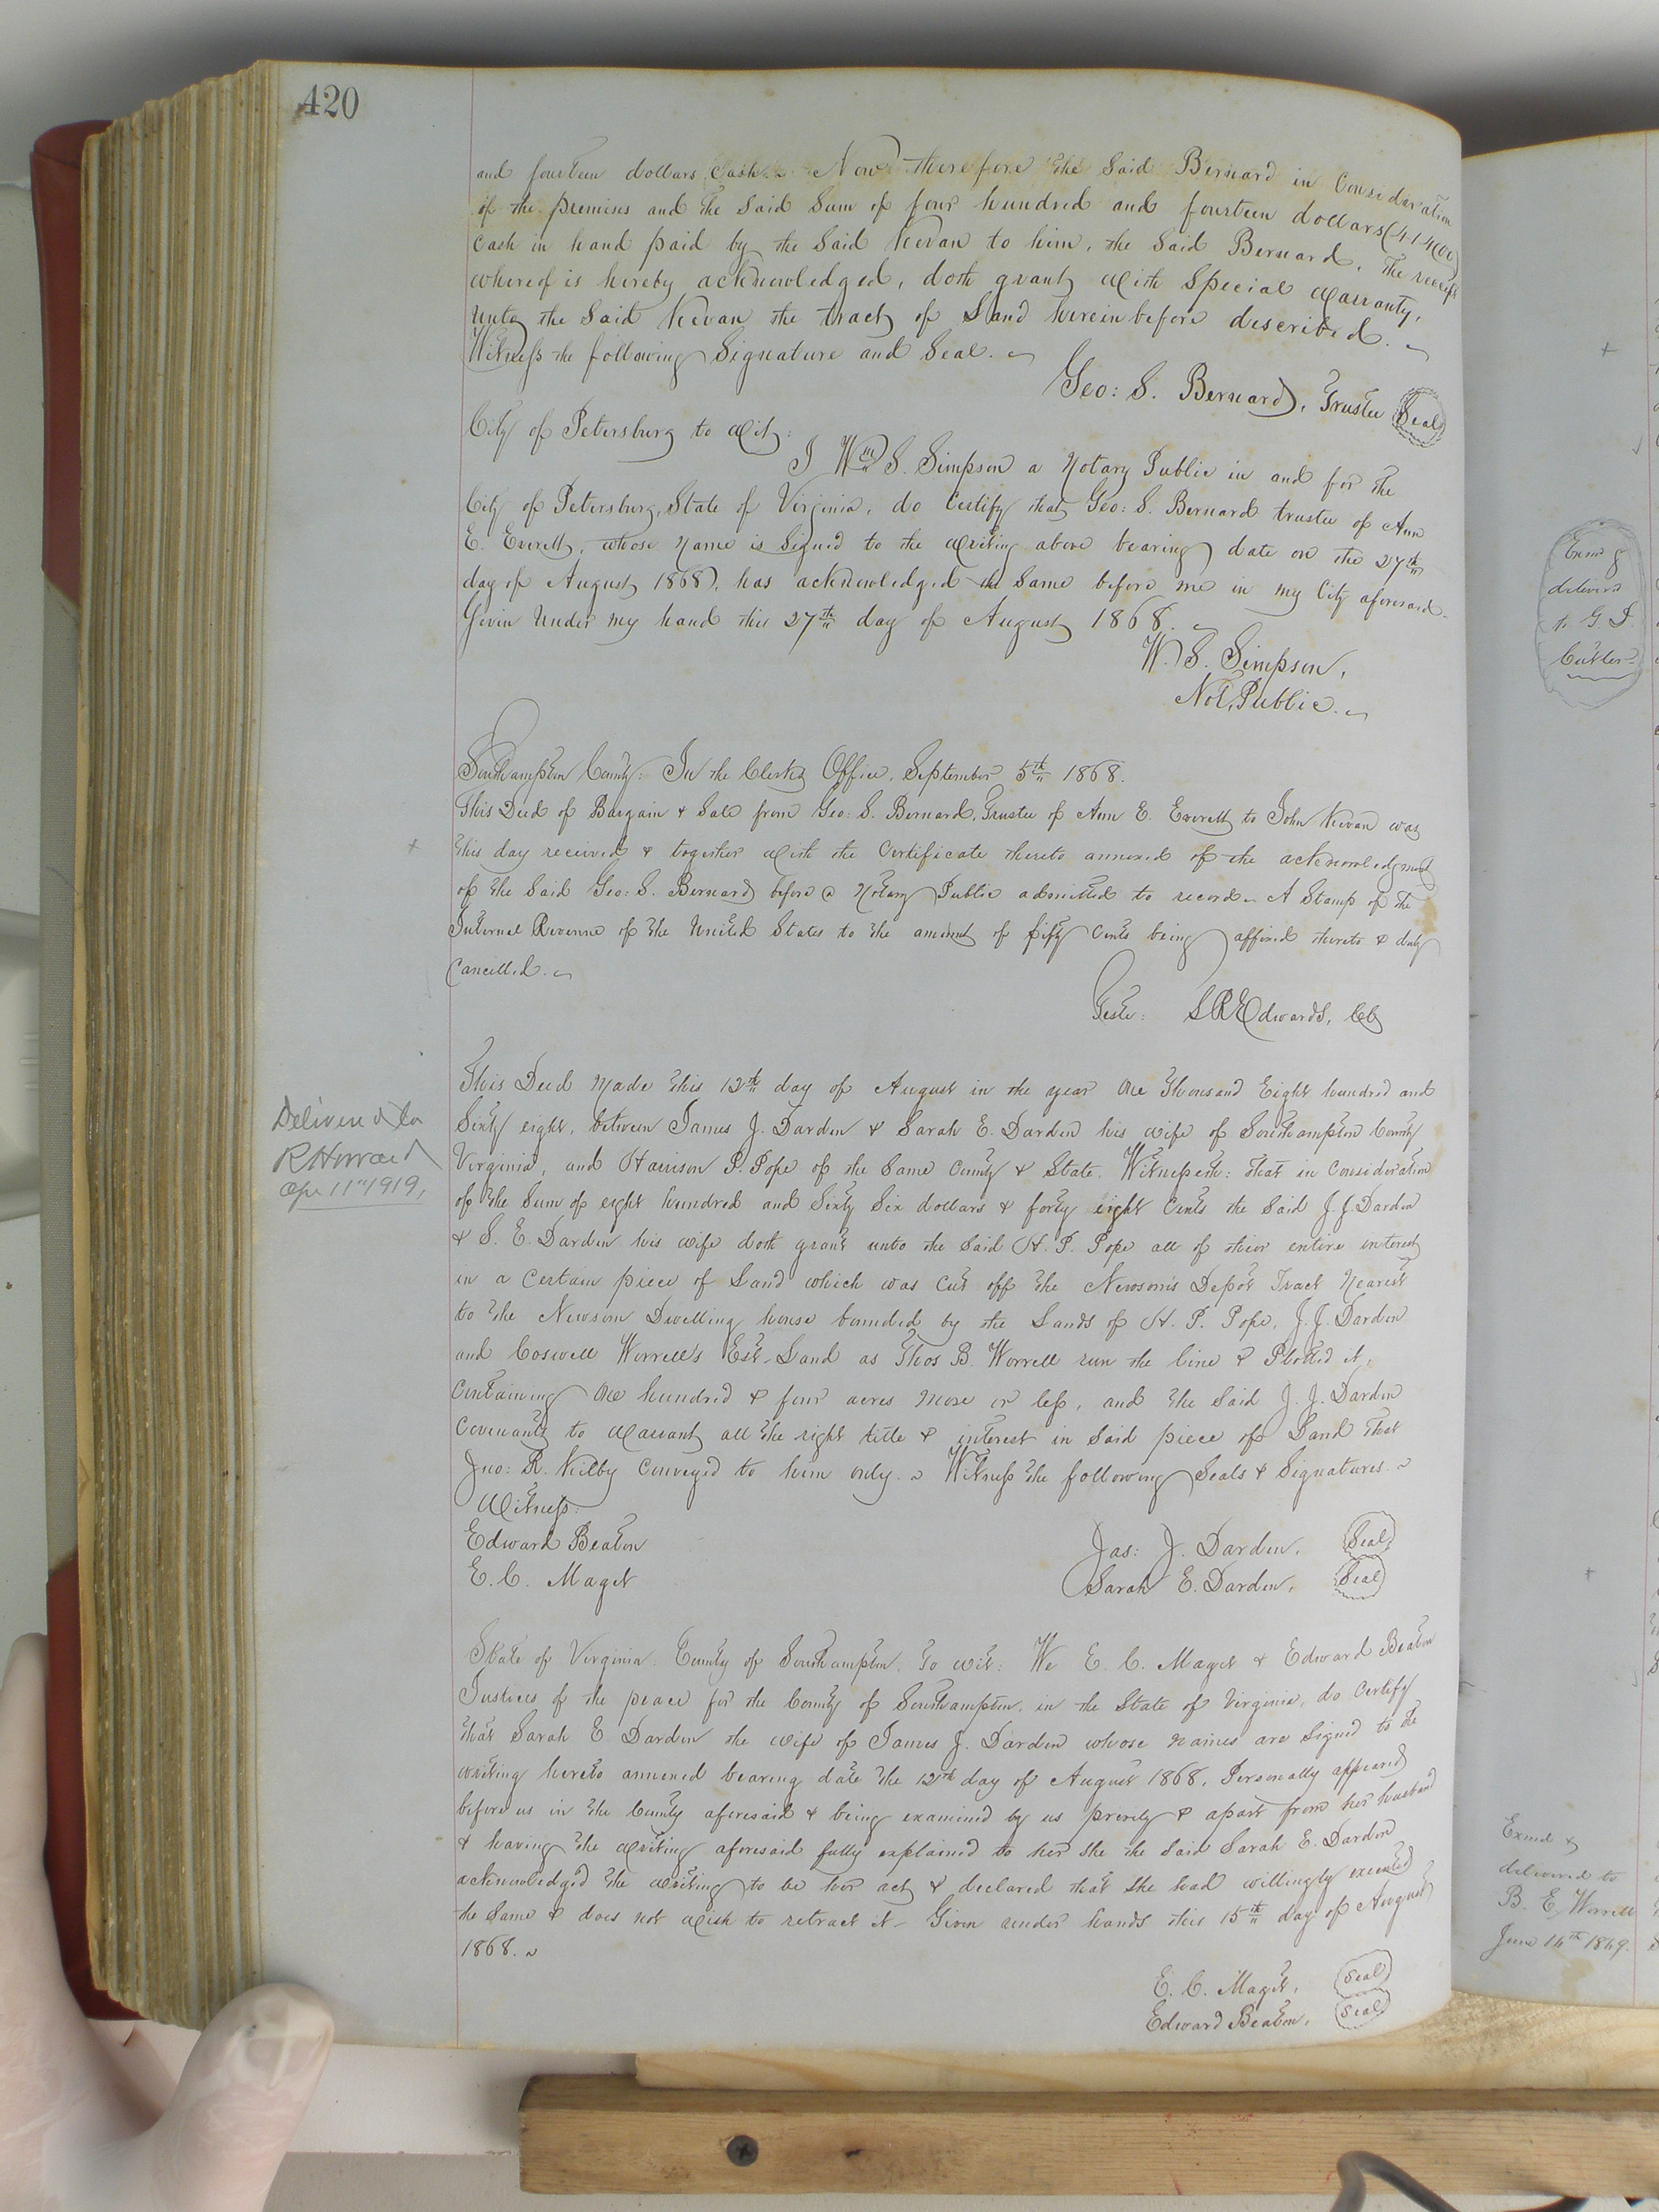 420
and fourteen dollars Cash. Now therefore the Said Bernard in Consideration
of the premises and the Said Sum of four hundred and fourteen dollars (414.00)
Cash in hand paid by the Said Kevan to him, the Said Bernard, the receipt
whereof is hereby acknowledged, doth grant with Special Warranty,
unto the Said Kevan the tract of Land herein before described.
Witness the following Signature and Seal.
Geo: S. Bernard, Trustee Seal
City of Petersburg to wit:
I Wm S. Simpson a Notary Public in and for the
City of Petersburg, State of Virginia, do Certify that Geo: S. Bernard trustee of Ann
E. Everett, whose Name is Signed to the writing above bearing date on the 27th
day of August 1868, has acknowledged the Same before me in my City aforesaid.
Given Under my hand this 27th day of August 1868.
W. S. Simpson,
Not. Public.
Southampton County: In the Clerks Office, September 5th 1868.
This Deed of Bargain & Sale from Geo: S. Bernard, Trustee of Ann E. Everett to John Kevan was
this day received & together with the Certificate thereto annexed of the acknowledgment
of the Said Geo: S. Bernard before a Notary Public admitted to record. A Stamp of the
Internal Revenue of the United States to the amount of fifty Cents being affixed thereto & duly
Cancelled.
Teste: L R Edwards, CC
Delivered to
R Howard
Apr 11th 1919,
This Deed Made this 12th day of August in the year One Thousand Eight hundred and
Sixty eight, between James J. Darden & Sarah E. Darden his wife of Southampton County
Virginia, and Harrison P. Pope of the Same County & State. Witnesseth: that in Consideration
of the Sum of eight hundred and Sixty Six dollars & forty eight Cents the Said J. J. Darden
& S. E. Darden his wife doth grant unto the Said H. P. Pope all of their entire interest
in a Certain piece of Land which was Cut off the Newsom's Depot Tract Nearest
to the Newsom Dwelling house bounded by the Lands of H. P. Pope, J. J. Darden
and Coswell Worrell's Est. Land as Thos B. Worrell run the line & Plotted it,
Containing One hundred & four acres More or less, and the Said J. J. Darden
Covenants to Warrant all the right title & interest in Said piece of Land that
Jno: R. Kilby Conveyed to him only. Witness the following Seals & Signatures.
Witness:
Edward Beaton Jas: J. Darden. Seal
E. C. Maget Sarah E. Darden. Seal
State of Virginia. County of Southampton. To wit: We E. C. Maget & Edward Beaton
Justices of the peace for the County of Southampton, in the State of Virginia, do Certify
that Sarah E Darden the wife of James J. Darden whose names are Signed to the
writing hereto annexed bearing date the 12th day of August 1868, Personally appeared
before us in the County aforesaid & being examined by us privily & apart from her husband
& having the writing aforesaid fully explained to her She the Said Sarah E. Darden
acknowledged the writing to be her act & declared that She had willingly executed
the Same & does not wish to retract it. Given under hands this 15th day of August
1868.
E. C. Maget, Seal
Edward Beaton, Seal
delivered
to G
Exmd &
delivered to
B. E. Worrell
June 14th 1869.